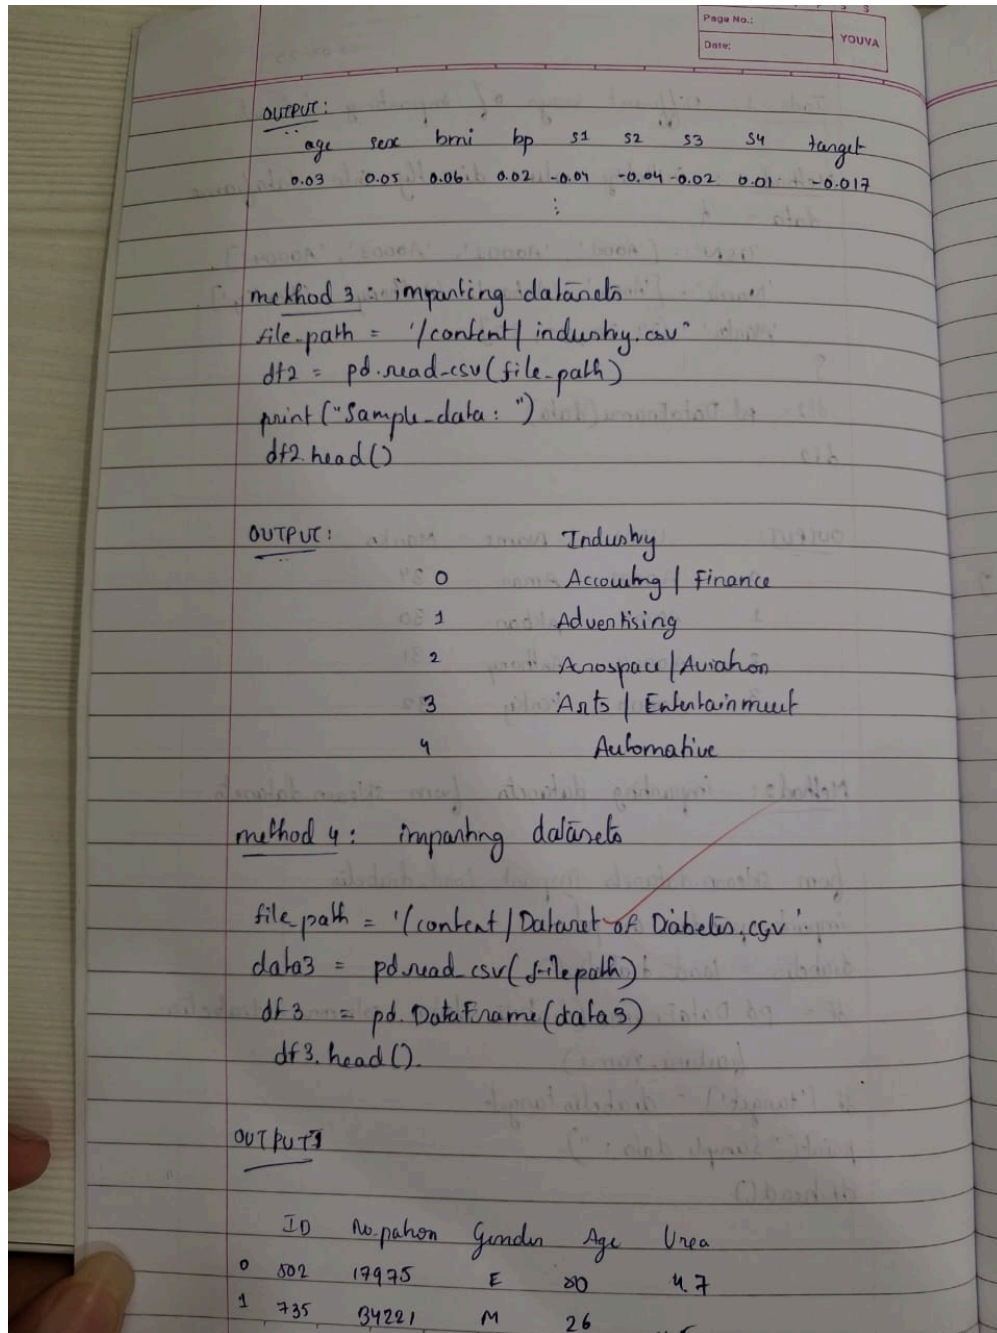 Page No.:
Date:
YOUVA
OUTPUT:
age sex bmi bp s1 s2 s3 s4 target
0.03 0.05 0.06 0.02 -0.04 -0.04 -0.02 0.01 -0.017
⋮
method 3: importing datasets
file_path = '/content/industry.csv"
df2 = pd.read_csv(file_path)
print("Sample_data: ")
df2.head()
OUTPUT: Industry
0 Accounting / Finance
1 Advertising
2 Arospace/Aviation
3 Arts / Entertainment
4 Automative
method 4: importing datasets
file_path = '/content/Dataset of Diabetes.csv'
data3 = pd.read_csv(filepath)
df3 = pd.DataFrame(data3)
df3.head().
OUTPUT
ID No.pation Gender Age Urea
0 502 17975 E 50 4.7
1 735 34221 M 26